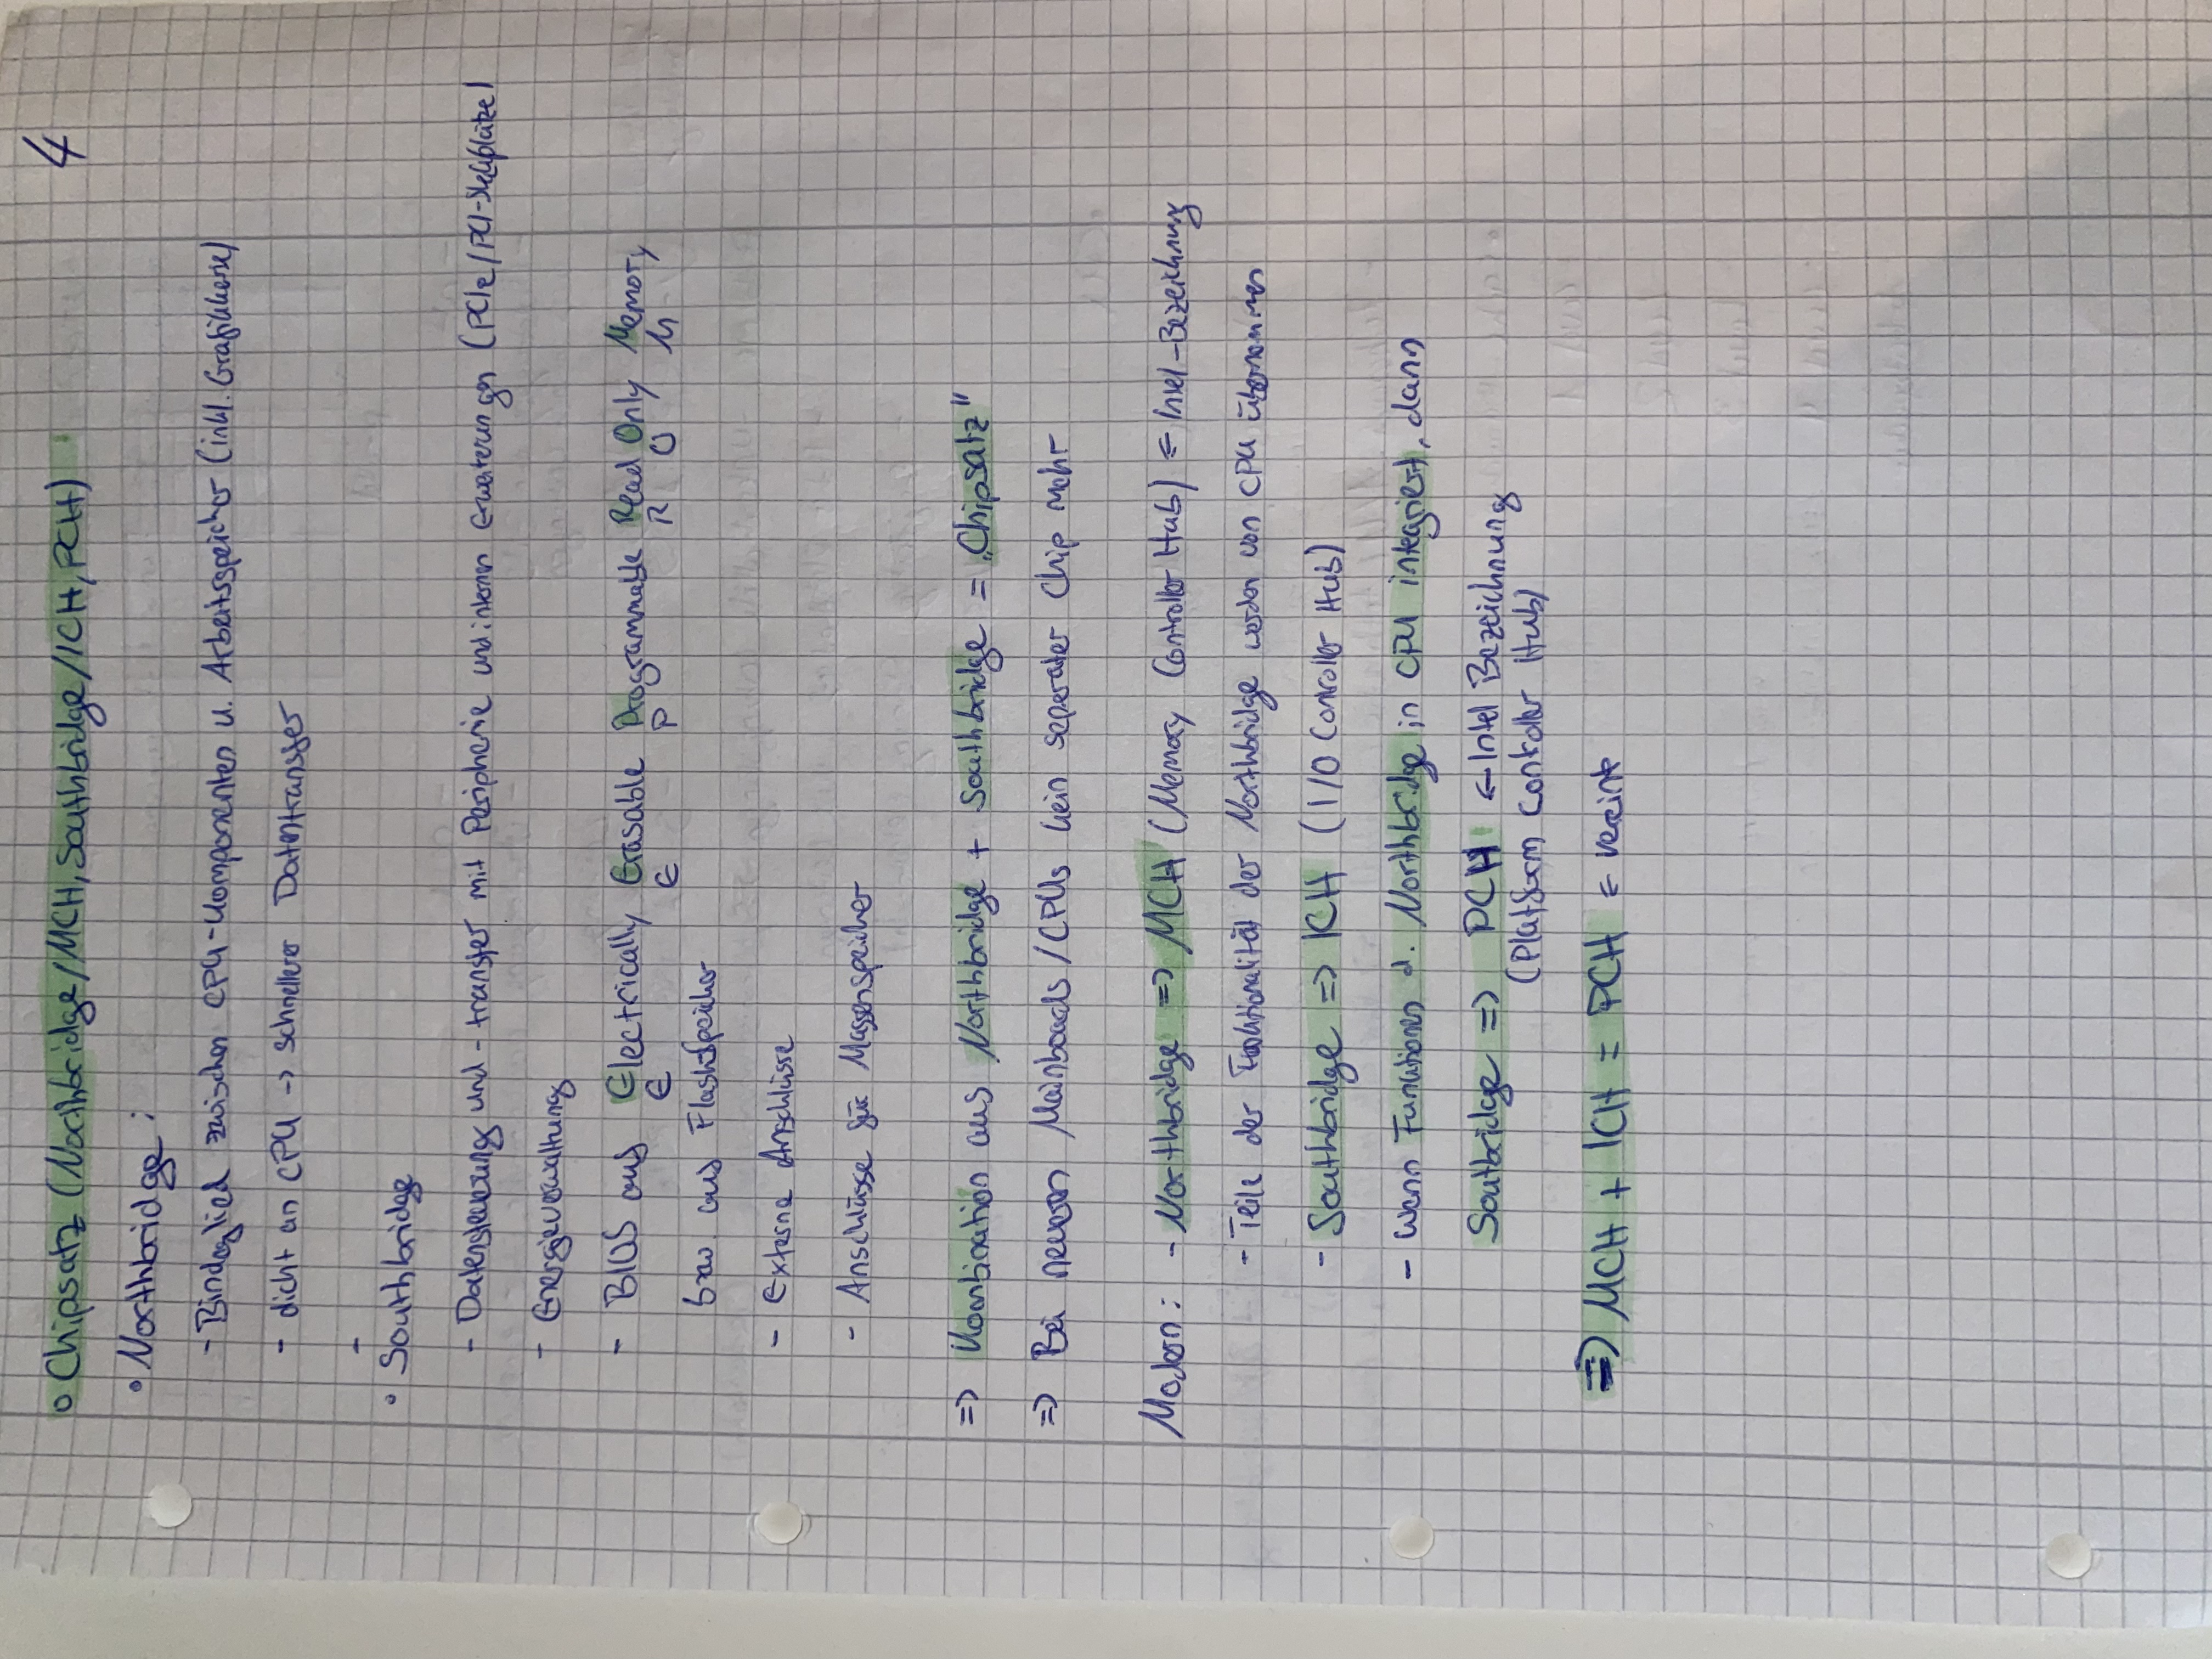 4
° Chipsatz (Northbridge/MCH, Southbridge/ICH, PCH)
• Northbridge:
- Bindeglied zwischen CPU-Komponenten u. Arbeitsspeicher (inkl. Grafikkerne)
- dicht an CPU -> schneller Datentransfer
-
• Southbridge
- Datensteuerung und -transfer mit Peripherie und internen Erweiterungen (PCIe/PCI-Steckplätze)
- Energieverwaltung
- BIOS aus Electrically Erasable Programmable Read Only Memory
E E P R O M
bzw. aus FlashSpeicher
- Externe Anschlüsse
- Anschlüsse für Massenspeicher
=> Kombination aus Northbridge + Southbridge = „Chipsatz"
=> Bei neueren Mainboards/CPUs kein seperater Chip mehr
Modern: - Northbridge => MCH (Memory Controller Hub) <= Intel-Bezeichnung
- Teile der Funktionalität der Northbridge werden von CPU übernommen
- Southbridge => ICH (I/O Controller Hub)
- Wenn Funktionen d. Northbridge in CPU integriert, dann
Southbridge => PCH <- Intel Bezeichnung
(Platform Controller Hub)
=> MCH + ICH = PCH <= vereint